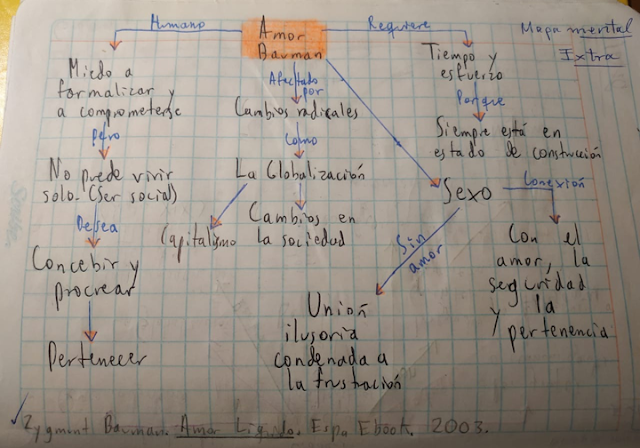 Humano
Amor
Bauman
Requiere
Mapa mental
Extra
Miedo a
formalizar y
a comprometerse
pero
No puede vivir
solo. (Ser social)
Desea
Concebir y
procrear
Pertenecer
Afectado
por
Cambios radicales
como
La Globalización
Capitalismo
Cambios en
la sociedad
Tiempo y
esfuerzo
Porque
Siempre está en
estado de construcción
Sexo
Conexión
Con el
amor, la
seguridad
y la
pertenencia
Sin
amor
Unión
ilusoria
condenada a
la frustración
Zygmunt Bauman. Amor Líquido. Espa Ebook. 2003.